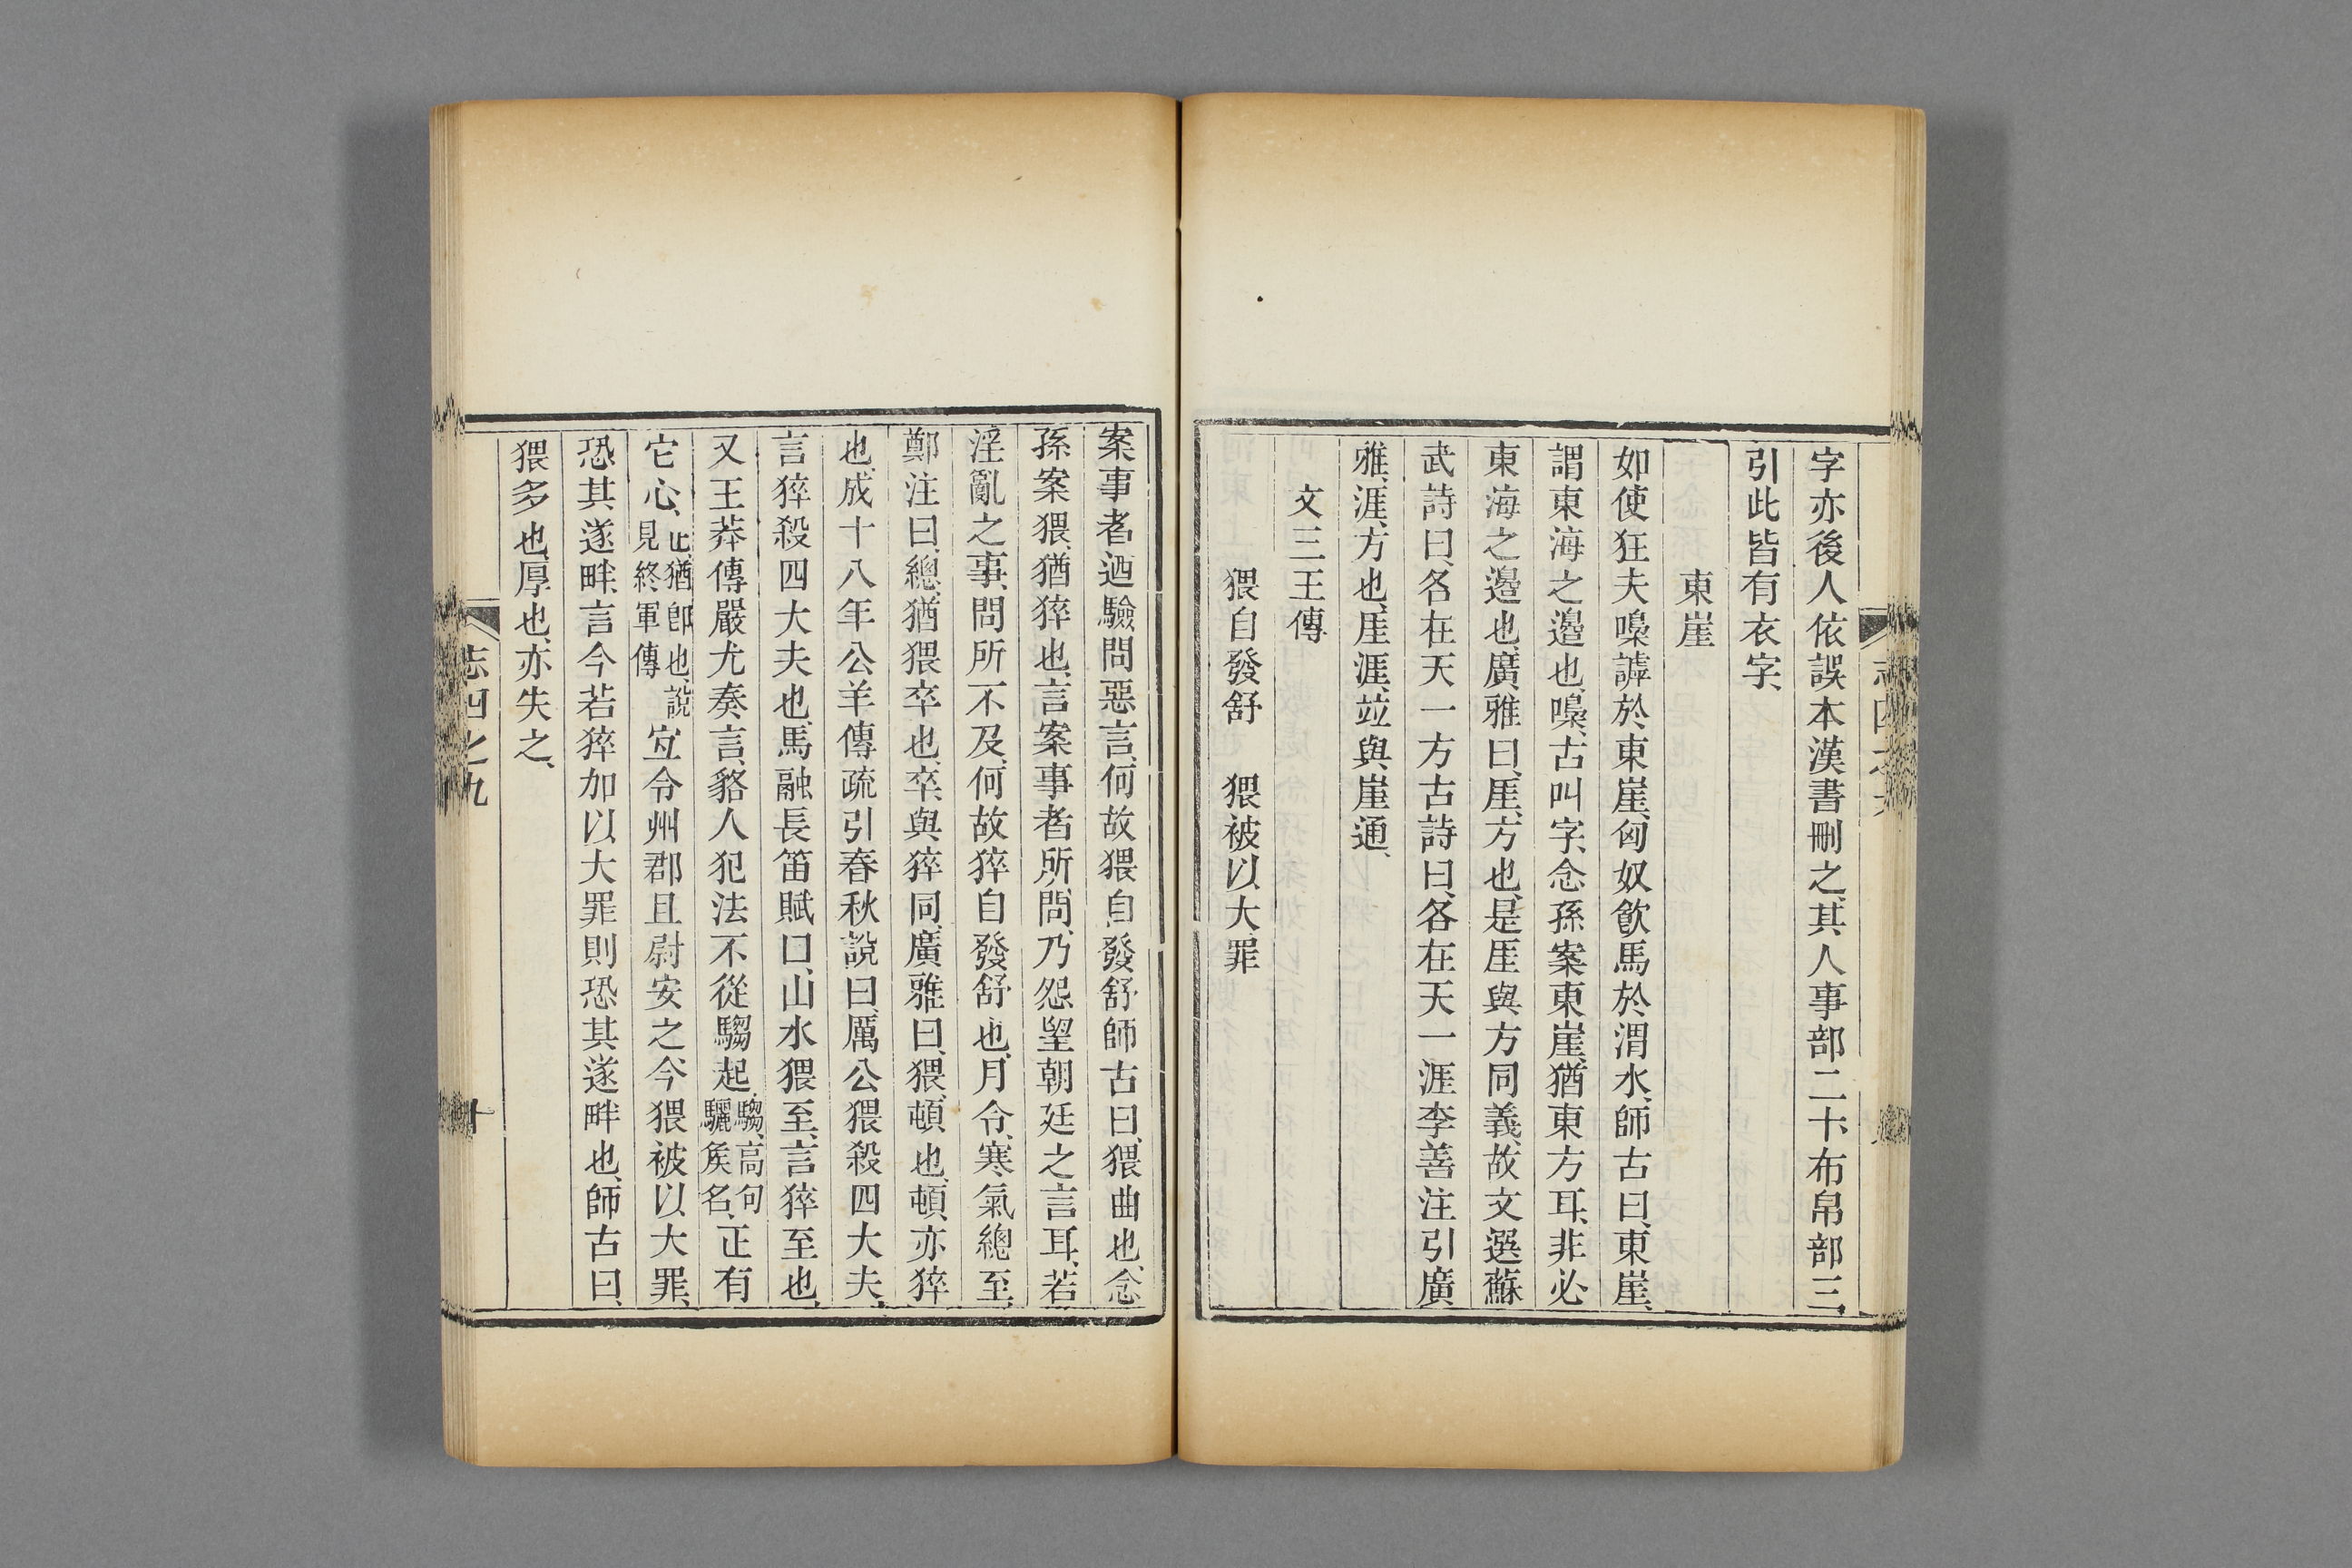 字亦後人依誤本漢書刪之、其人事部二十、布帛部三、
引此皆有衣字、
東崖
如使狂夫嘄謼於東崖、匈奴飲馬於渭水、師古曰、東崖、
謂東海之邊也、嘄、古叫字、念孫案東崖、猶東方耳、非必
東海之邊也、廣雅曰、厓、方也、是厓與方同義、故文選蘇
武詩曰、各在天一方、古詩曰、各在天一涯、李善注引廣
雅、涯、方也、厓涯、竝與崖通、
文三王傳
猥自發舒　猥被以大罪
案事者迺驗問惡言、何故猥自發舒、師古曰、猥曲也、念
孫案猥、猶猝也、言案事者所問、乃怨望朝廷之言耳、若
淫亂之事、問所不及、何故猝自發舒也、月令、寒氣總至、
鄭注曰、總、猶猥卒也、卒、與猝同、廣雅曰、猥、頓也、頓、亦猝
也、成十八年公羊傳疏引春秋說曰、厲公猥殺四大夫、
言猝殺四大夫也、馬融長笛賦曰、山水猥至、言猝至也、
又王莽傳嚴尤奏言、貉人犯法、不從騶起、騶、高句驪矦名、正有
它心、正、猶卽也、說見終軍傳宜令州郡且尉安之、今猥被以大罪、
恐其遂畔、言今若猝加以大罪、則恐其遂畔也、師古曰、
猥多也、厚也、亦失之、
志四之九
十